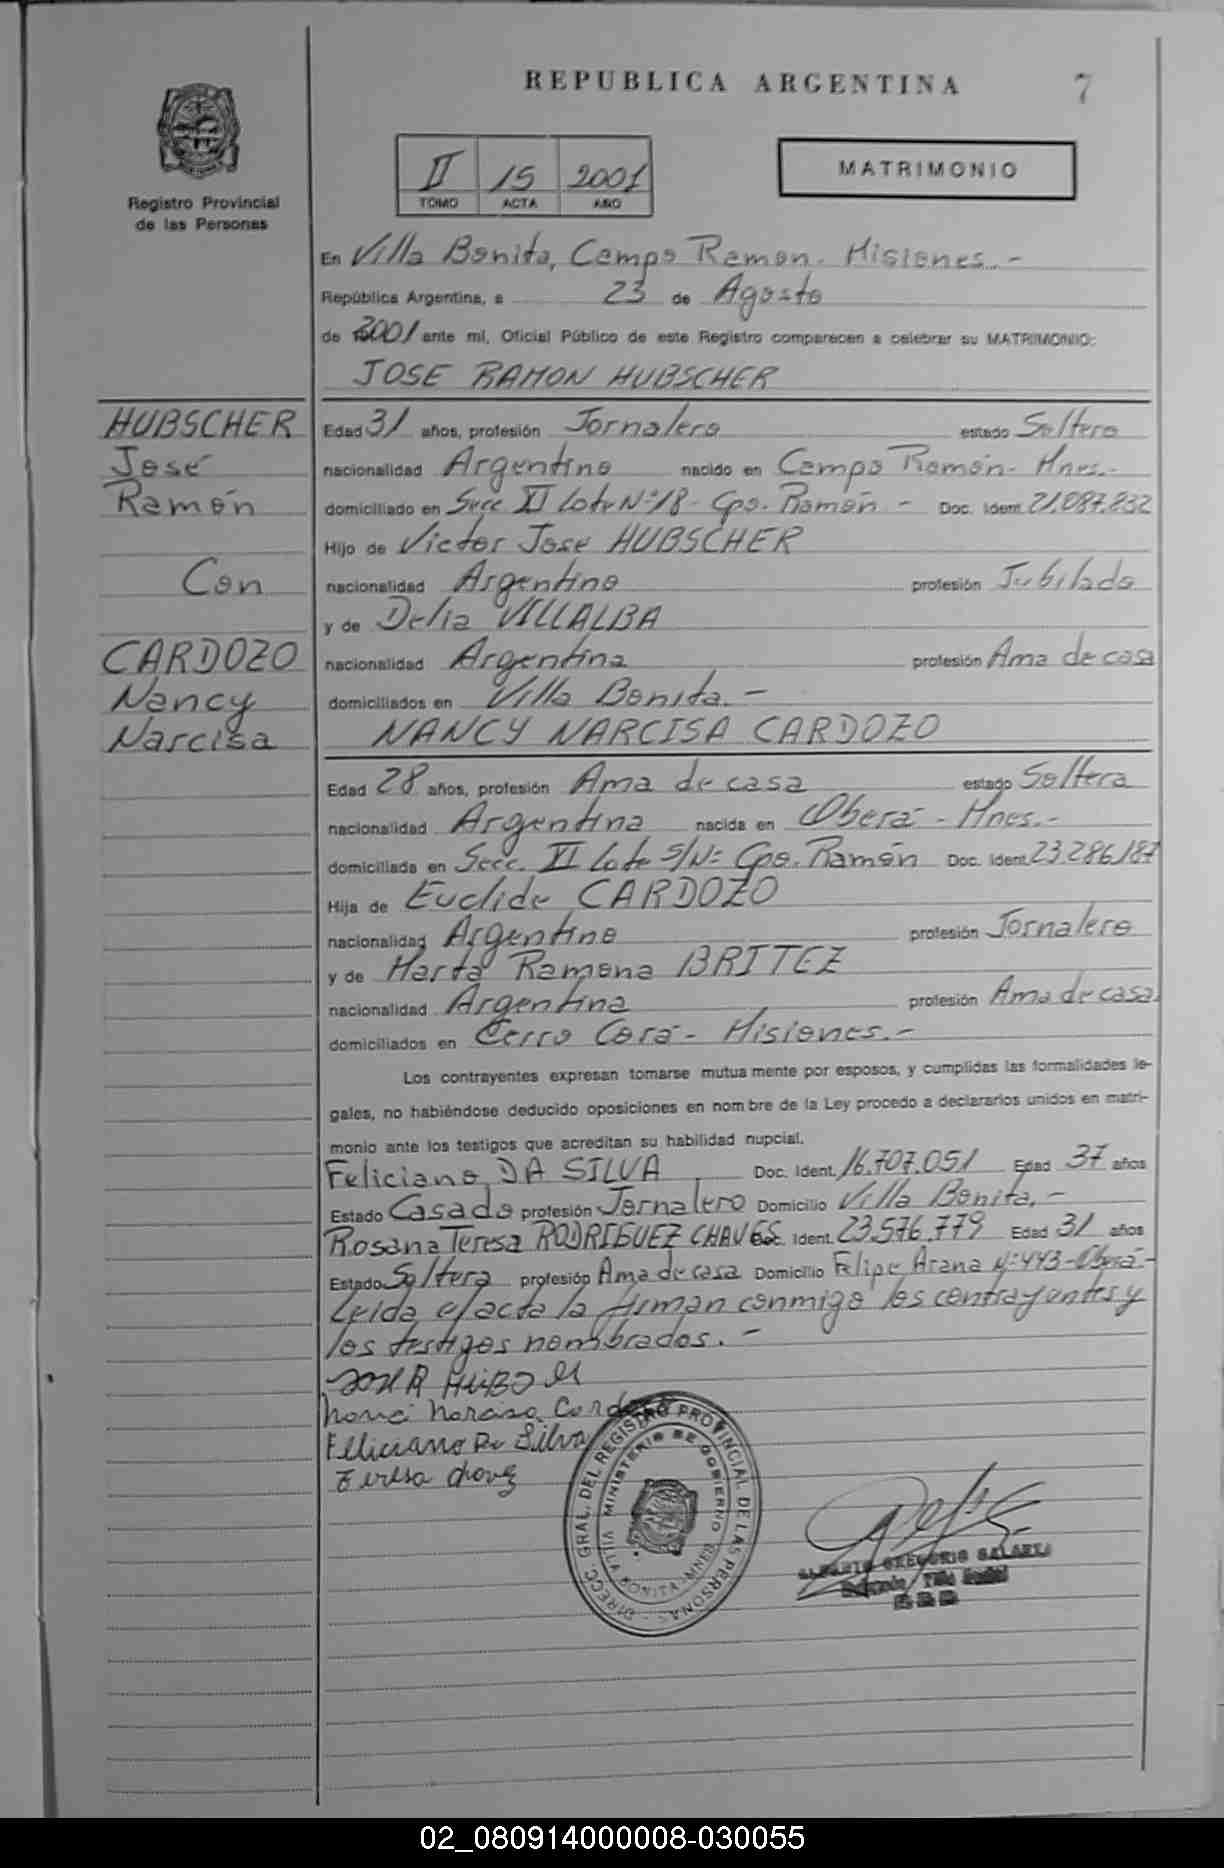 REPUBLICA ARGENTINA
7
Registro Provincial
de las Personas
II 15 2001
TOMO ACTA AÑO
MATRIMONIO
En Villa Bonita, Campo Ramon. Misiones.-
República Argentina, a 23 de Agosto
de 2001 ante mi, Oficial Público de este Registro comparecen a celebrar su MATRIMONIO:
JOSE RAMON HUBSCHER
HUBSCHER
José
Ramón
Con
CARDOZO
Nancy
Narcisa
Edad 31 años, profesión Jornalero estado Soltero
nacionalidad Argentino nacido en Campo Ramón- Mnes.-
domiciliado en Secc. XI Lote Nº 18 - Cpo. Ramón - Doc. Ident. 21.087.832
Hijo de Victor Jose HUBSCHER
nacionalidad Argentino profesión Jubilado
y de Delia VILLALBA
nacionalidad Argentina profesión Ama de casa
domiciliados en Villa Bonita.-
NANCY NARCISA CARDOZO
Edad 28 años, profesión Ama de casa estado Soltera
nacionalidad Argentina nacida en Oberá - Mnes.-
domiciliada en Secc. XI Lote S/Nº Cpo. Ramón Doc. Ident. 23.286.187
Hija de Euclide CARDOZO
nacionalidad Argentino profesión Jornalero
y de Marta Ramona BRITEZ
nacionalidad Argentina profesión Ama de casa.
domiciliados en Cerro Corá - Misiones.-
Los contrayentes expresan tomarse mutua mente por esposos, y cumplidas las formalidades le-
gales, no habiéndose deducido oposiciones en nom bre de la Ley procedo a declararlos unidos en matri-
monio ante los testigos que acreditan su habilidad nupcial.
Feliciano DA SILVA Doc. Ident. 16.707.051 Edad 37 años
Estado Casado profesión Jornalero Domicilio Villa Bonita.-
Rosana Teresa RODRIGUEZ CHAVES Doc. Ident. 23.576.779 Edad 31 años
Estado Soltera profesión Ama de casa Domicilio Felipe Arana Nº 443-Oberá.-
Leida el acta la firman conmigo los contrayentes y
los testigos nombrados.-
Narcisa Cardozo
Da Silva
Teresa
DIRECC. GRAL. DEL REGISTRO PROVINCIAL DE LAS PERSONAS
MINISTERIO DE GOBIERNO
VILLA BONITA-MNES
GREGORIO
02_080914000008-030055